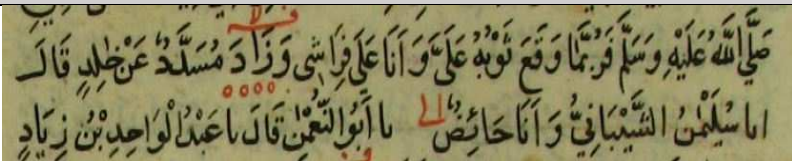 صَلَّى اللّٰهُ عَلَيْهِ وَسَلَّمَ فَرُبَّمَا وَقَعَ ثَوْبُهُ عَلَىَّ وَ اَنَا عَلَى فِرَاشِى وَزَادَ مُسَدَّدٌ عَنْ خٰلِدٍ قَالَ
انا سُلَيْمٰنُ الشَّيْبَانِيُّ وَ اَنَا حَائِضٌ الى نا اَبُو النُّعْمٰنِ قَالَ نا عَبْدُ الْوَاحِدِ بْنُ زِيَادٍ